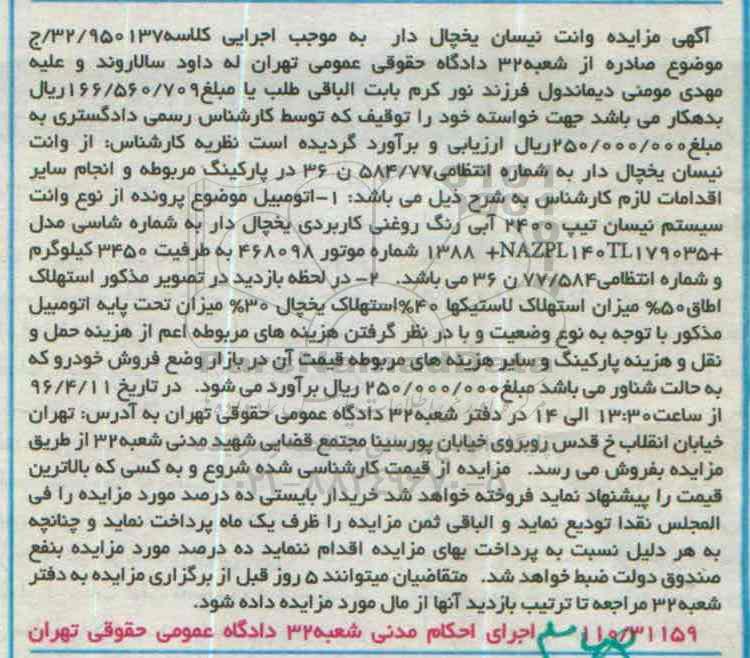 آگهی مزایده وانت نیسان یخچال دار به موجب اجرایی کلاسه۳۲/۹۵۰۱۳۷/ج
موضوع صادره از شعبه۳۲ دادگاه حقوقی عمومی تهران له داود سالاروند و علیه
مهدی مومنی دیماندول فرزند نور کرم بابت الباقی طلب یا مبلغ۱۶۶/۵۶۰/۷۰۹ریال
بدهکار می باشد جهت خواسته خود را توقیف که توسط کارشناس رسمی دادگستری به
مبلغ۲۵۰/۰۰۰/۰۰۰ریال ارزیابی و برآورد گردیده است نظریه کارشناس: از وانت
نیسان یخچال دار به شماره انتظامی۵۸۴/۷۷ ن ۳۶ در پارکینگ مربوطه و انجام سایر
اقدامات لازم کارشناس به شرح ذیل می باشد: ۱-اتومبیل موضوع پرونده از نوع وانت
سیستم نیسان تیپ ۲۴۰۰ آبی رنگ روغنی کاربردی یخچال دار به شماره شاسی مدل
+NAZPL۱۴۰TL۱۷۹۰۳۵+ ۱۳۸۸ شماره موتور ۴۶۸۰۹۸ به ظرفیت ۳۴۵۰ کیلوگرم
و شماره انتظامی۷۷/۵۸۴ ن ۳۶ می باشد. ۲- در لحظه بازدید در تصویر مذکور استهلاک
اطاق۵۰% میزان استهلاک لاستیکها ۴۰%استهلاک یخچال ۳۰% میزان تحت پایه اتومبیل
مذکور با توجه به نوع وضعیت و با در نظر گرفتن هزینه های مربوطه اعم از هزینه حمل و
نقل و هزینه پارکینگ و سایر هزینه های مربوطه قیمت آن در بازار وضع فروش خودرو که
به حالت شناور می باشد مبلغ۲۵۰/۰۰۰/۰۰۰ ریال برآورد می شود. در تاریخ ۹۶/۴/۱۱
از ساعت۱۳:۳۰ الی ۱۴ در دفتر شعبه۳۲ دادگاه عمومی حقوقی تهران به آدرس: تهران
خیابان انقلاب خ قدس روبروی خیابان پورسینا مجتمع قضایی شهید مدنی شعبه۳۲ از طریق
مزایده بفروش می رسد. مزایده از قیمت کارشناسی شده شروع و به کسی که بالاترین
قیمت را پیشنهاد نماید فروخته خواهد شد خریدار بایستی ده درصد مورد مزایده را فی
المجلس نقدا تودیع نماید و الباقی ثمن مزایده را ظرف یک ماه پرداخت نماید و چنانچه
به هر دلیل نسبت به پرداخت بهای مزایده اقدام ننماید ده درصد مورد مزایده بنفع
صندوق دولت ضبط خواهد شد. متقاضیان میتوانند ۵ روز قبل از برگزاری مزایده به دفتر
شعبه۳۲ مراجعه تا ترتیب بازدید آنها از مال مورد مزایده داده شود.
۱۱۰/۳۱۱۵۹ اجرای احکام مدنی شعبه۳۲ دادگاه عمومی حقوقی تهران